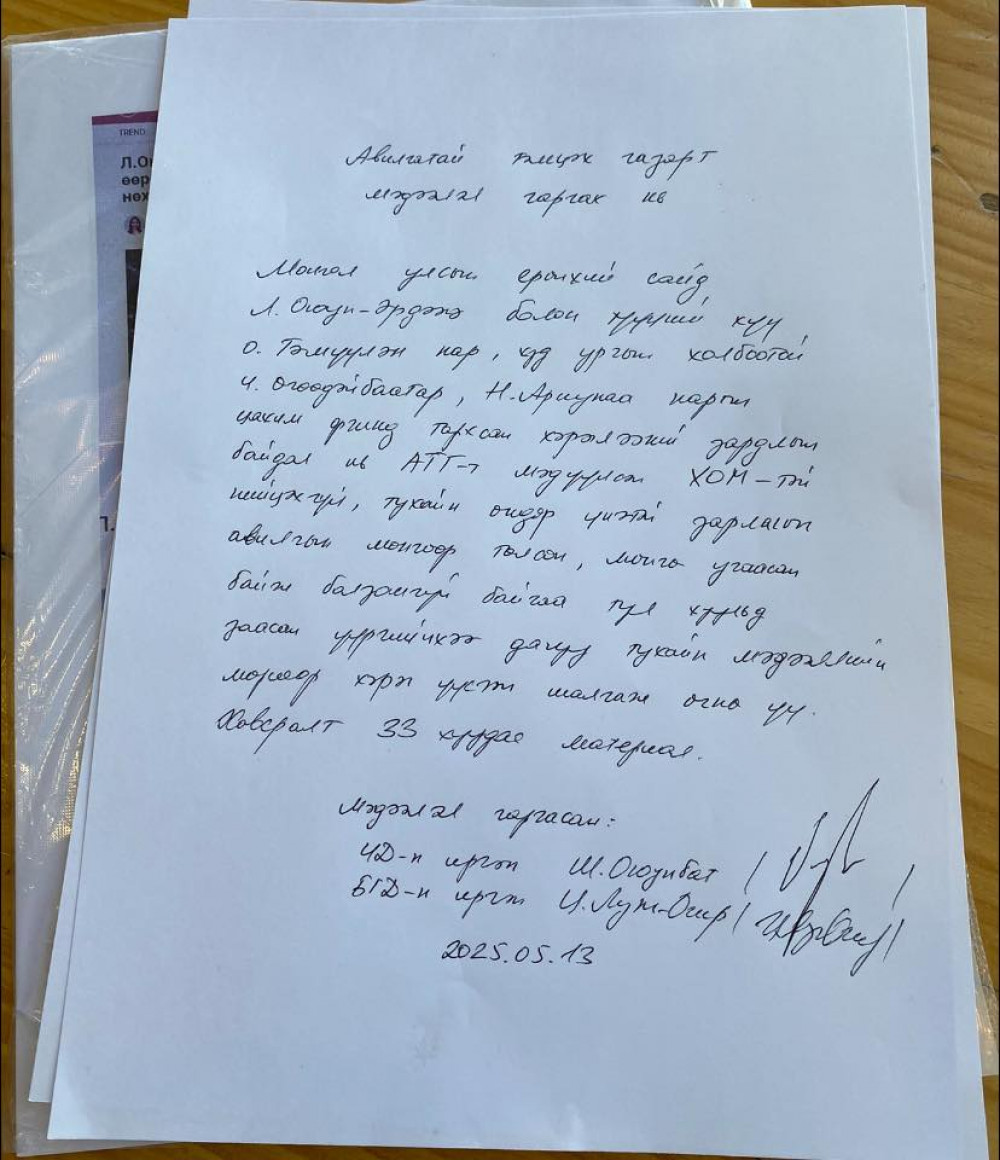 TREND
Л.О
өөр
нөх
Авилгатай тэмцэх газарт
мэдээлэл гаргах нь
Монгол улсын ерөнхий сайд
Л. Оюун-Эрдэнэ болон түүний хүү
О. Тэмүүлэн нар, худ ургын холбоотой
Ч. Өгөөдэйбаатар, Н. Ариунаа нарын
цахим орчинд тархсан хэрэглээний зардлын
байдал нь АТГ-т мэдүүлсэн ХОМ-тэй
нийцэхгүй, тухайн өндөр үнэтэй зарлагын
авилгын мөнгөөр төлсөн, мөнгө угаасан
байж болзошгүй байгаа тул хуульд
заасан үүргийнхээ дагуу тухайн мэдээллийн
мөрөөр хэрэг үүсгэж шалгаж өгнө үү.
Хавсралт 33 хуудас материал.
Мэдээлэл гаргасан:
ЧД-н иргэн Ш. Оюунбат / /
БГД-н иргэн Ц. Лув-Очир / /
2025.05.13